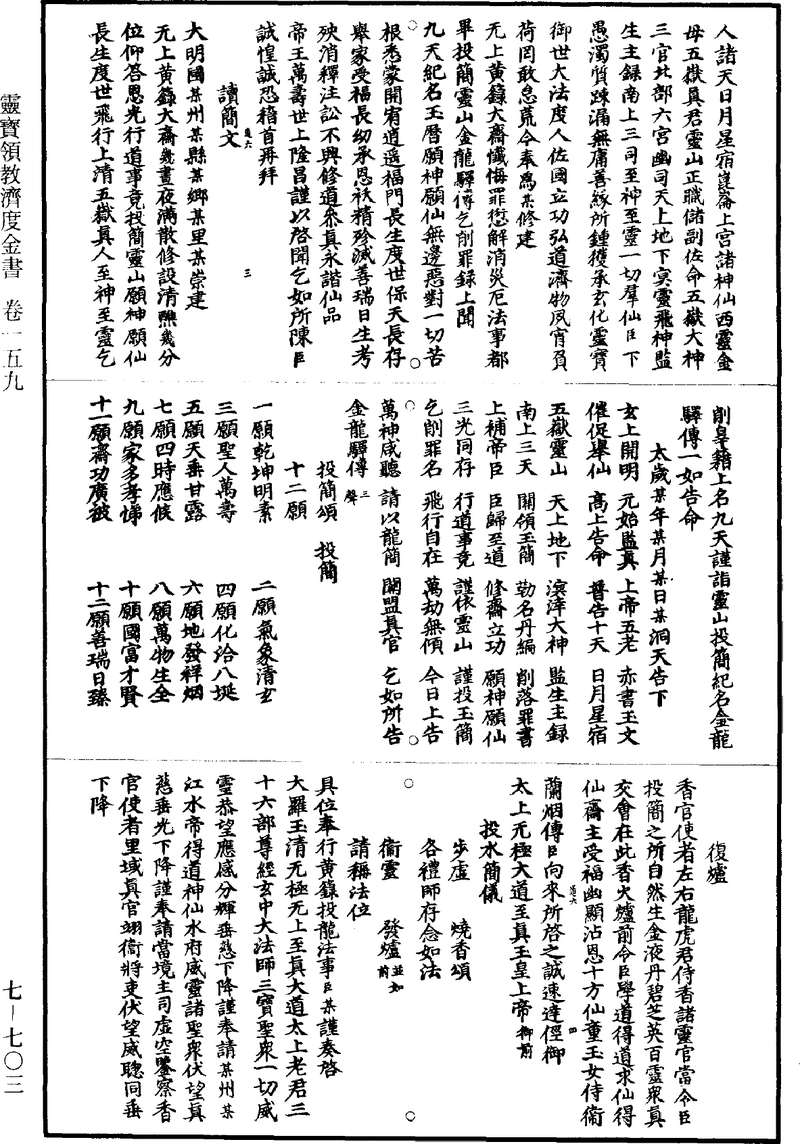 人諸天日月星宿崑崙上宮諸神仙西靈金
母五嶽真君靈山正職儲副佐命五嶽大神
三官北部六宮幽司天上地下冥靈飛神監
生主録南上三司至神至靈一切羣仙臣下
愚濁質踈漏無庸善緣所鍾獲承玄化靈寶
御世大法度人佐國立功弘道濟物夙宵負
荷罔敢怠荒今奉爲某修建
无上黃籙大齋懺悔罪愆解消災厄法事都
畢投簡靈山金龍驛傳乞削罪録上聞
九天紀名玉曆願神願仙無邊惡對一切苦
根悉蒙開宥逍遥福門長生度世保天長存
舉家受福長幼承恩袄精殄滅善瑞日生考
殃消釋注訟不興修道參真永諧仙品
帝王萬壽世上隆昌謹以啓聞乞如所陳臣
誠惶誠恐稽首再拜
讀簡文
大明國某州某縣某鄉某里某崇建
无上黃籙大齋幾晝夜滿散修設清醮幾分
位仰答恩光行道事竟投簡靈山願神願仙
長生度世飛行上清五嶽真人至神至靈乞
削辠籍上名九天謹詣靈山投簡紀名金龍
驛傳一如告命
太歲某年某月某日某洞天告下
玄上開明 元始監真 上帝五老 赤書玉文
催促羣仙 高上告命 普告十天 日月星宿
五嶽靈山 天上地下 溟涬大神 監生主録
南上三天 關領玉簡 勒名丹編 削落罪書
上補帝臣 臣歸至道 修齋立功 願神願仙
三光同存 行道事竟 謹依靈山 謹投玉簡
乞削罪名 飛行自在 萬劫無傾 今日上告
萬神咸聽 請以龍簡 關盟真官 乞如所告
金龍驛傳 三聲
投簡頌 投簡
十二願
一願乾坤明素 二願氣象清玄
三願聖人萬壽 四願化洽八埏
五願天垂甘露 六願地發祥烟
七願四時應候 八願萬物生全
九願家多孝悌 十願國富才賢
十一願齋功廣被 十二願善瑞日臻
復爐
香官使者左右龍虎君侍香諸靈官當令臣
投簡之所自然生金液丹碧芝英百靈衆真
交會在此香火爐前令臣學道得道求仙得
仙齋主受福幽顯沾恩十方仙童玉女侍衞
蘭烟傳臣向來所啓之誠速達徑御
太上无極大道至真玉皇上帝御前
投水簡儀
步虛 燒香頌
各禮師存念如法
衞靈 發爐並如前
請稱法位
具位奉行黃籙投龍法事臣某謹奏啓
大羅玉清无極无上至真大道太上老君三
十六部尊經玄中大法師三寶聖衆一切威
靈恭望應感分輝垂慈下降謹奉請某州某
江水帝得道神仙水府威靈諸聖衆伏望真
慈垂光下降謹奉請當境主司虛空鑒察香
官使者里域真官翊衞將吏伏望威聰同垂
下降
靈寶領教濟度金書 卷一五九
七－七〇三